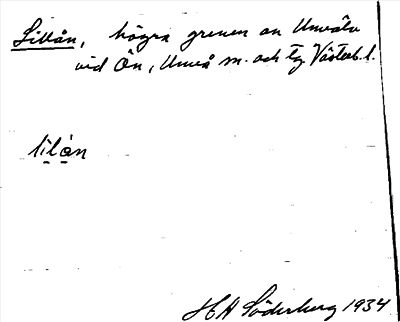 Lillån, högra grenen av Umeälv
vid Ön, Umeå sn. och tg. Västerb. l.
lilån
H A Söderberg 1934